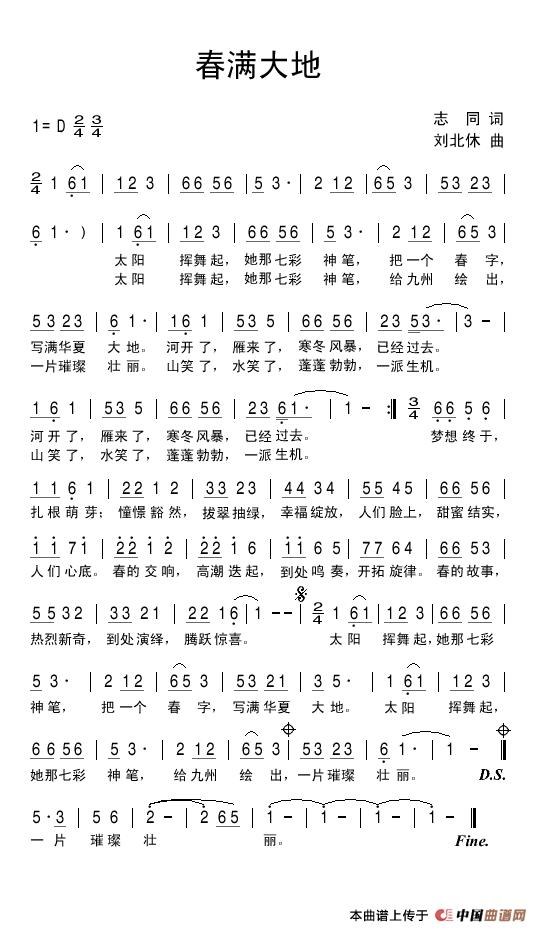 春满大地
1= D 2/4 3/4
志 同 词
刘北休 曲
2/4 1 61 | 12 3 | 66 56 | 5 3· | 2 12 | 65 3 | 53 23 |
6 1· ) | 1 61 | 12 3 | 66 56 | 5 3· | 2 12 | 65 3 |
太阳 挥舞起, 她那七彩 神笔, 把一个 春字,
太阳 挥舞起, 她那七彩 神笔, 给九州 绘出,
53 23 | 6 1· | 16 1 | 53 5 | 66 56 | 23 53· | 3 – |
写满华夏 大地。 河开了, 雁来了, 寒冬风暴, 已经过去。
一片璀璨 壮丽。 山笑了, 水笑了, 蓬蓬勃勃, 一派生机。
1 6 1 | 53 5 | 66 56 | 23 61· | 1 – :| 3/4 66 5 6 |
河开了, 雁来了, 寒冬风暴, 已经过去。 梦想终于,
山笑了, 水笑了, 蓬蓬勃勃, 一派生机。
11 6 1 | 22 1 2 | 33 23 | 44 34 | 55 45 | 66 56 |
扎根萌芽; 憧憬豁然, 拔翠抽绿, 幸福绽放, 人们脸上, 甜蜜结实,
11 71 | 22 12 | 22 16 | 11 65 | 77 64 | 66 53 |
人们心底。 春的交响, 高潮迭起, 到处鸣奏, 开拓旋律。 春的故事,
55 32 | 33 21 | 22 16 | 1 – – | 2/4 1 61 | 12 3 | 66 56 |
热烈新奇, 到处演绎, 腾跃惊喜。 太阳 挥舞起, 她那七彩
5 3· | 2 12 | 65 3 | 53 21 | 3 5· | 1 61 | 12 3 |
神笔, 把一个 春字, 写满华夏 大地。 太阳 挥舞起,
66 56 | 5 3· | 2 12 | 65 3 | 53 23 | 6 1· | 1 – ‖
她那七彩 神笔, 给九州 绘出, 一片璀璨 壮丽。 D.S.
5·3 | 5 6 | 2 – | 2 65 | 1 – | 1 – | 1 – | 1 – ‖
一片 璀璨 壮 丽。 Fine.
本曲谱上传于 中国曲谱网